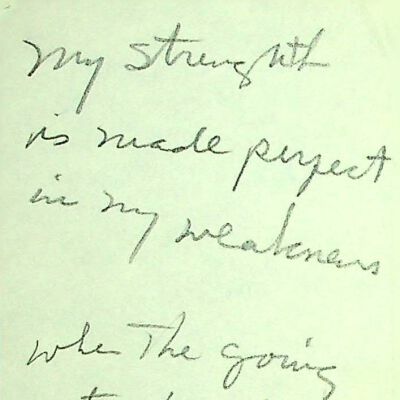 My strength
is made perfect
in my weakness
when The going